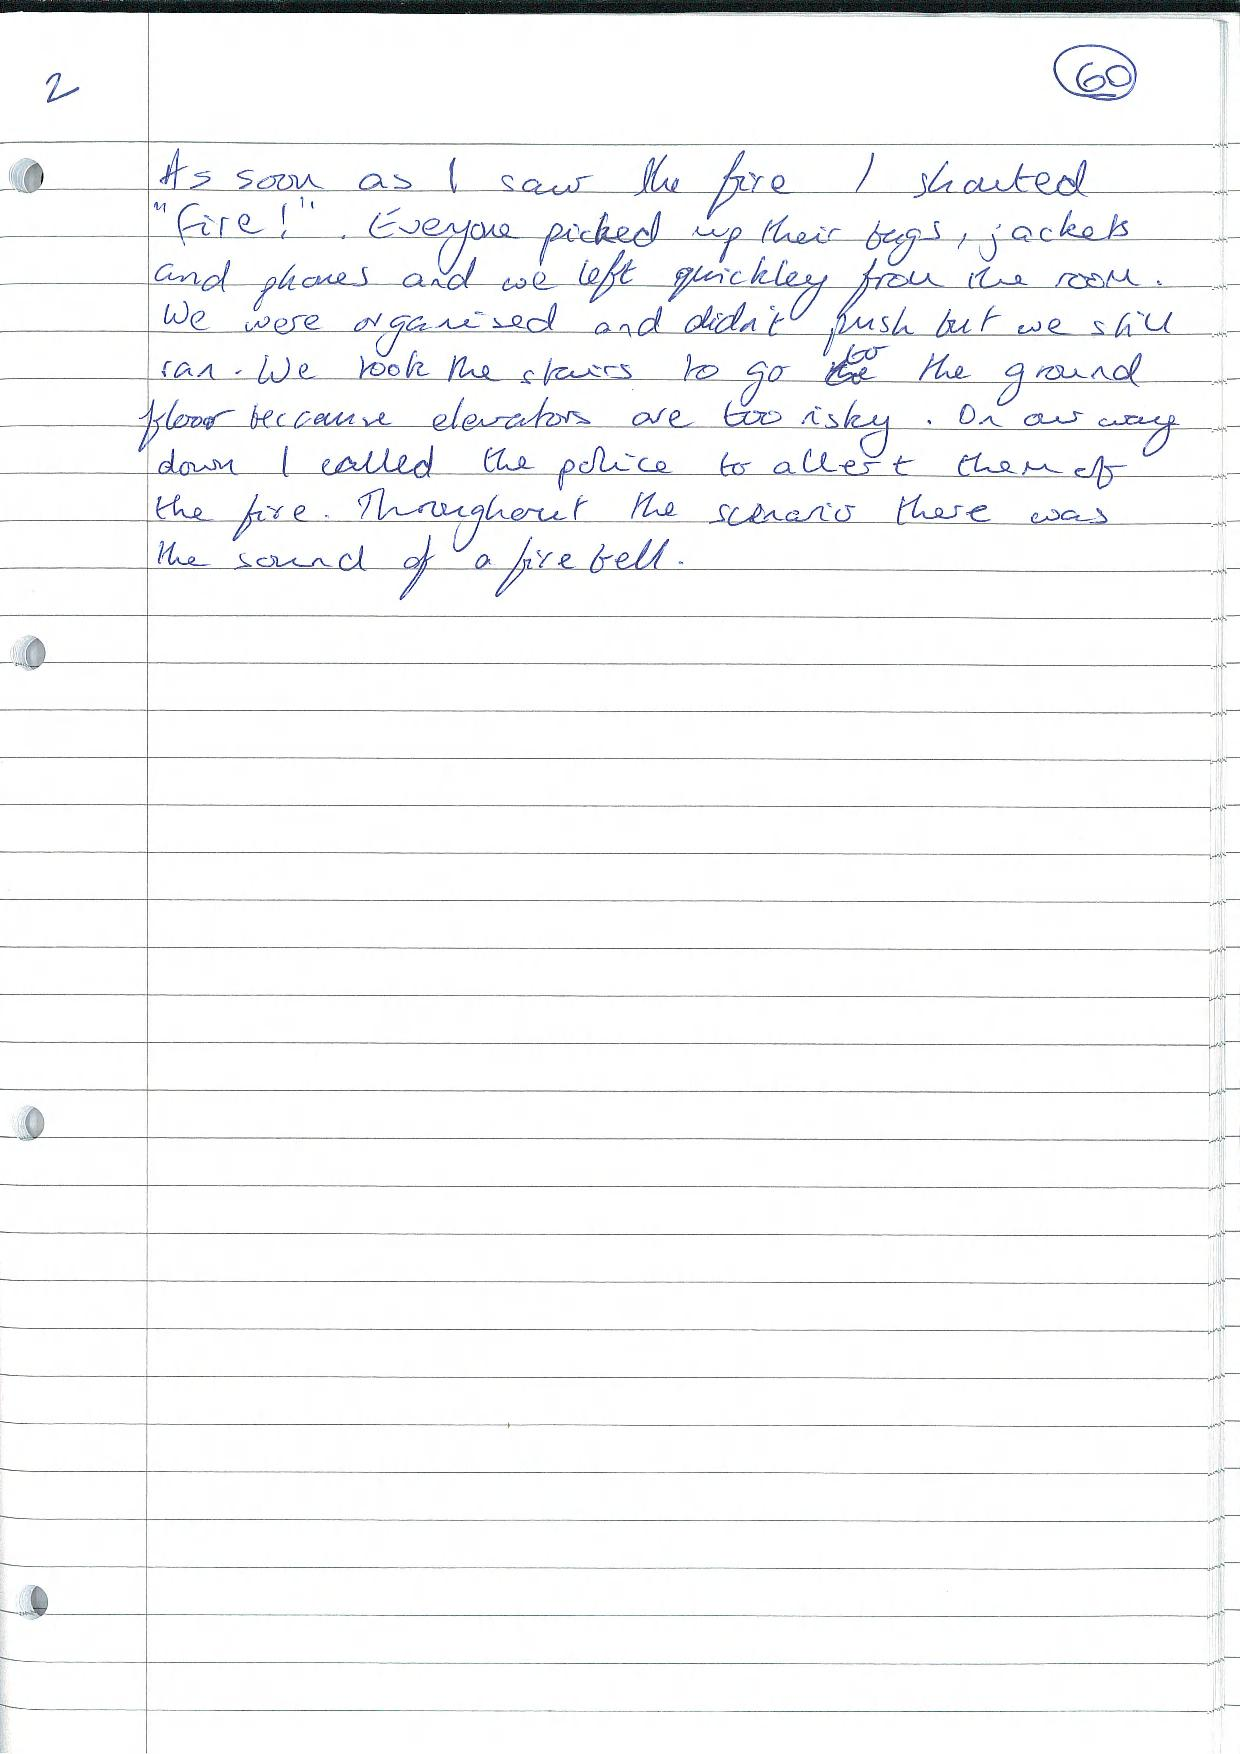 2
60
As soon as I saw the fire I shouted
"fire!". Everyone picked up their bags, jackets
and phones and we left quickley from the room.
We were organised and didn't push but we still
ran. We took the stairs to go to the ground
floor beccause elevators are too risky. On our way
down I called the police to allert them of
the fire. Throughout the scenario there was
the sound of a fire bell.